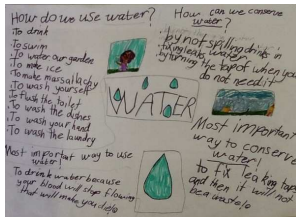 How do we use water?
To drink
To swim
To water our garden
To make ice
To make massallachy
To wash yourself
To flush the toilet
To wash the dishes
To wash your hand
To wash the laundry
Most important way to use
water
To drink water because
your blood will stop flowing
that will make you die
WATER
How can we conserve
water?
by not spilling drinks in
fixing leaks water
by turning the tap off when you
do not need it
Most important
way to conserve
water!
to fix leaking taps
and then it will not
be a waste